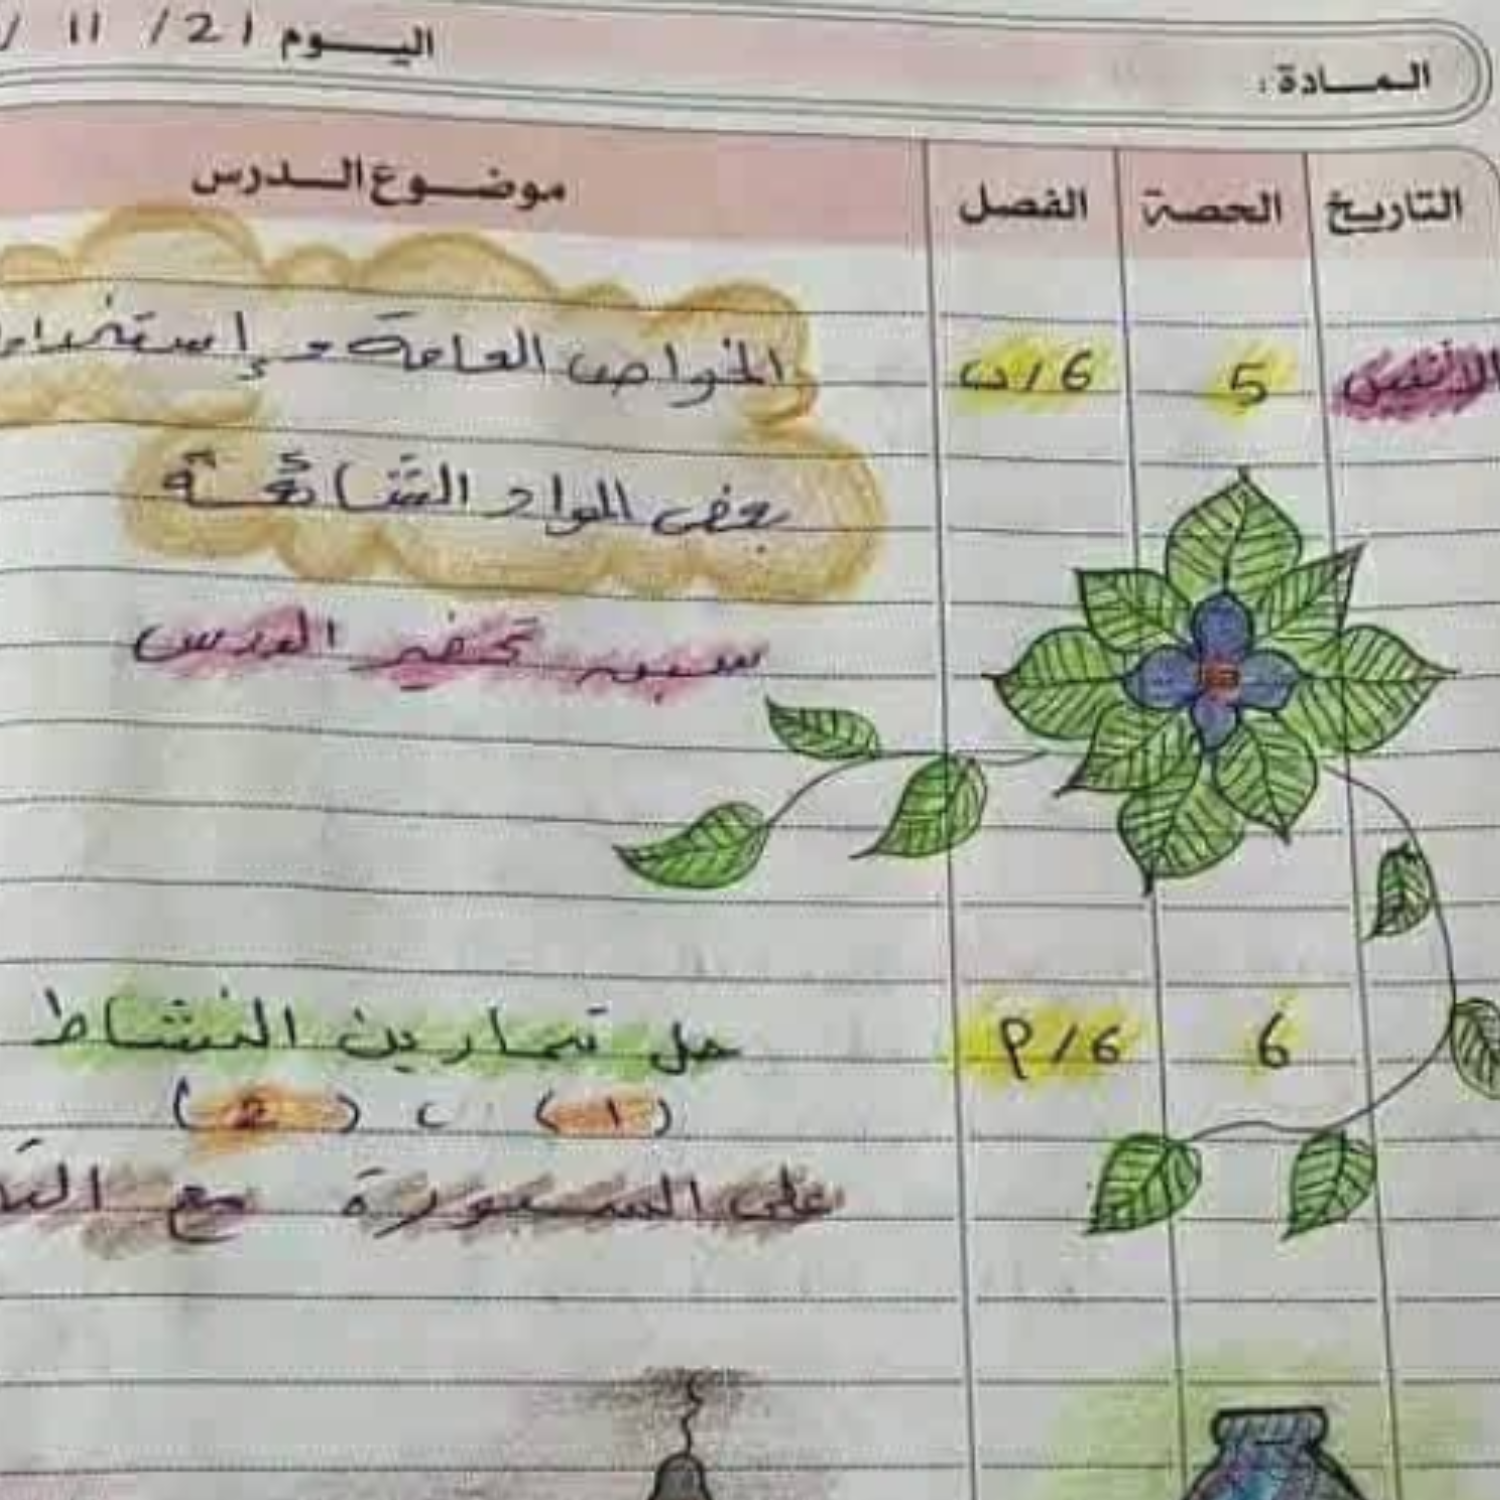 المادة :
اليوم 21 / 11 /
التاريخ الحصة الفصل موضوع الدرس
الاثنين 5 6/ب الخواص العامة و إستخدام
بعض المواد الشائعة
سبق تحضير الدرس
6 6/م حل تمارين النشاط
(1) ، (2)
على السبورة مع